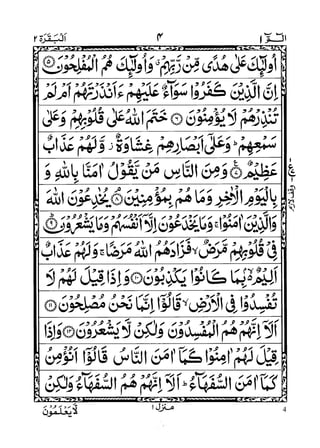 الٓمٓ ١ ٤ البقرة ٢
أُولٰٓئِكَ عَلٰى هُدًى مِّنْ رَّبِّهِمْ ۙ وَأُولٰٓئِكَ هُمُ الْمُفْلِحُوْنَ ٥
اِنَّ الَّذِيْنَ كَفَرُوْا سَوَآءٌ عَلَيْهِمْ ءَاَنْذَرْتَهُمْ اَمْ لَمْ
تُنْذِرْهُمْ لَا يُؤْمِنُوْنَ ٦ خَتَمَ اللّٰهُ عَلٰى قُلُوْبِهِمْ وَعَلٰى
سَمْعِهِمْ ؕ وَعَلٰٓى اَبْصَارِهِمْ غِشَاوَةٌ ؗ وَّلَهُمْ عَذَابٌ
عَظِيْمٌ ٧ وَمِنَ النَّاسِ مَنْ يَّقُوْلُ اٰمَنَّا بِاللّٰهِ وَ
بِالْيَوْمِ الْاٰخِرِ وَمَا هُمْ بِمُؤْمِنِيْنَ ٨ يُخٰدِعُوْنَ اللّٰهَ
وَالَّذِيْنَ اٰمَنُوْا ۚ وَمَا يَخْدَعُوْنَ اِلَّآ اَنْفُسَهُمْ وَمَا يَشْعُرُوْنَ ٩
فِيْ قُلُوْبِهِمْ مَّرَضٌ ۙ فَزَادَهُمُ اللّٰهُ مَرَضًا ۚ وَلَهُمْ عَذَابٌ
اَلِيْمٌۢ ۙ بِمَا كَانُوْا يَكْذِبُوْنَ ١٠ وَاِذَا قِيْلَ لَهُمْ لَا
تُفْسِدُوْا فِى الْاَرْضِ ۙ قَالُوْٓا اِنَّمَا نَحْنُ مُصْلِحُوْنَ ١١
اَلَآ اِنَّهُمْ هُمُ الْمُفْسِدُوْنَ وَلٰكِنْ لَّا يَشْعُرُوْنَ ١٢ وَاِذَا
قِيْلَ لَهُمْ اٰمِنُوْا كَمَآ اٰمَنَ النَّاسُ قَالُوْٓا اَنُؤْمِنُ
كَمَآ اٰمَنَ السُّفَهَآءُ ؕ اَلَآ اِنَّهُمْ هُمُ السُّفَهَآءُ وَلٰكِنْ
لَّا يَعْلَمُوْنَ منزل ١ 4